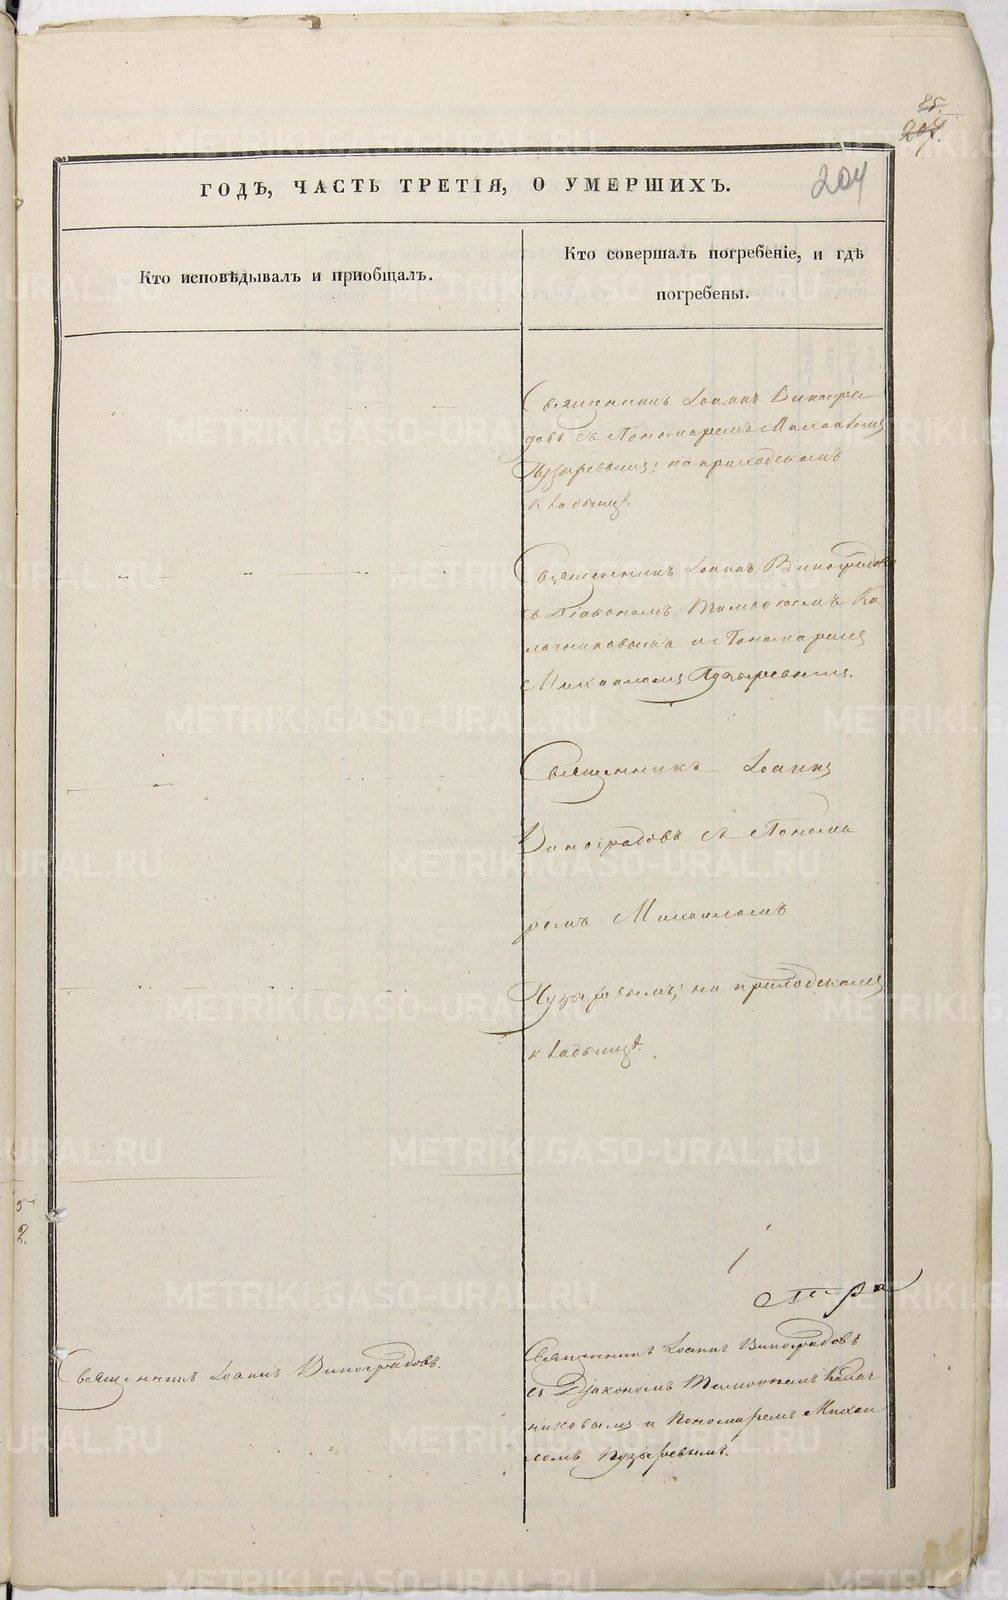 85.
207.
204
ГОДЪ, ЧАСТЬ ТРЕТІЯ, О УМЕРШИХЪ.
Кто исповѣдывалъ и пріобщалъ.
Кто совершалъ погребеніе, и гдѣ
погребены.
Священникъ Іоаннъ Виногра
довъ съ Пономаремъ Михаиломъ
Пузыревымъ; на приходскомъ
кладбищѣ.
Священникъ Іоаннъ Виноградовъ
съ Діакономъ Тимофеемъ Ка
лачниковымъ и Пономаремъ
Михаиломъ Пузыревымъ.
Священникъ Іоаннъ
Виноградовъ съ Понома
ремъ Михаиломъ
Пузыревымъ; на приходскомъ
кладбищѣ.
5
2.
Священникъ Іоаннъ Виноградовъ.
Священникъ Іоаннъ Виноградовъ
съ Діакономъ Тимофеемъ Калач
никовымъ и Пономаремъ Михаи
ломъ Пузыревымъ.
METRIKI.GASO-URAL.RU